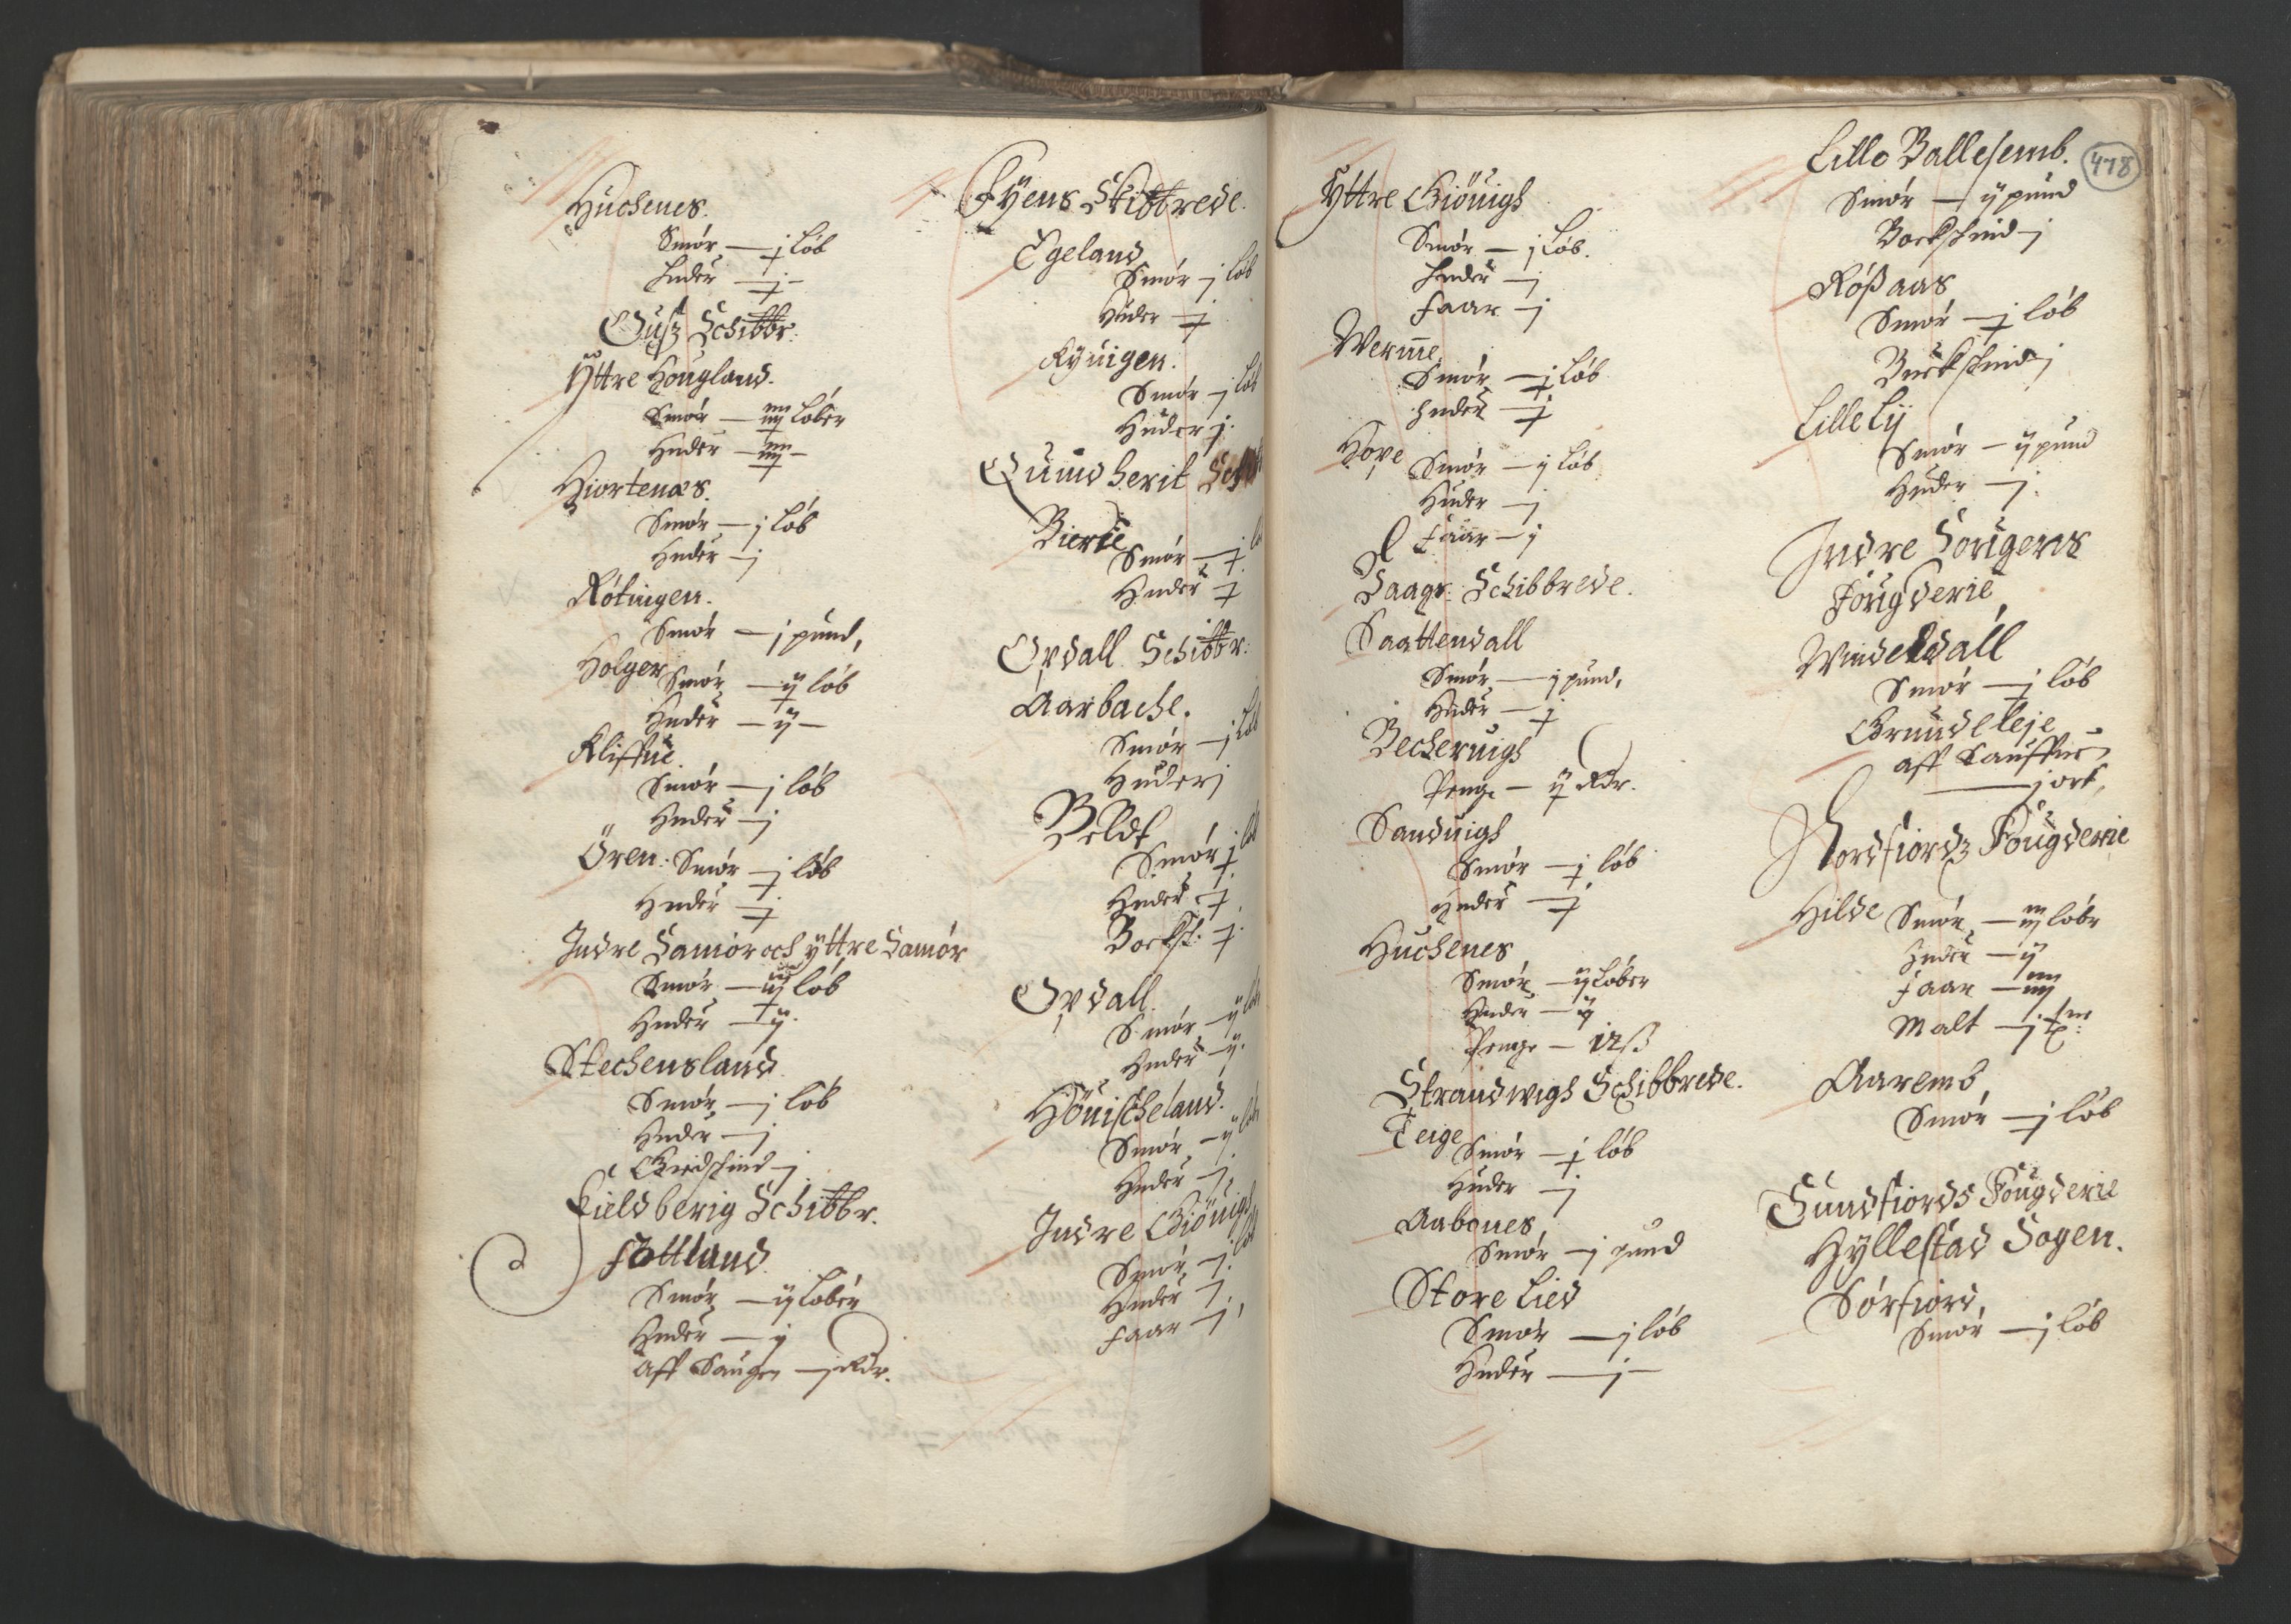 Huchenes.
Smör — j Löb
Huder — j —
Ous Schibbr:
Yttre Hougland.
Smör — iiij Löber
Huder — iiij —
Hiortenæs.
Smör — j Löb
Huder — j
Rötingen.
Smör — j pund,
Holger
Smör — ij löb
Huder — ij —
Kliffue.
Smör — j löb
Huder — j
Ören. Smör — j löb
Huder — j
Indre Samör och yttre Samör
Smör — iij löb
Huder — ij.
Stechensland.
Smör — j löb
Huder — j
Giedschind — j
Fieldberig Schibbr.
Fottland
Smör — ij Löber
Huder — ij
Aff Saugen — j Rdr.
Fyens Skibbrede.
Egeland
Smör — j löb
Huder — j
Ryuigen.
Smör — j löb
Huder j.
Quindherit
Bierie
Smör — j
Huder j
Opdall Schibbr:
Aarbache.
Smör — j Löb
Huder j
Beldt
Smör j
Huder j
Bocksk: j
Opdall.
Smör — ij
Huder — ij.
Höuischeland.
Smör — ij
Huder — j.
Indre Giöuigh
Smör — j.
Huder j
Faar — j,
Yttre Giöuigh
Smör — j Löb.
Huder — j
Faar — j
Werme
Smör — j Löb
Huder — j
Hope
Smör — ij Löb
Huder — j
Faar — j
Saags: Schibbrede.
Saattendall
Smör — j pund,
Huder — j
Becheruigh
Penge — ij Rdr.
Sanduigh
Smör — j löb
Huder — j
Huchenes
Smör — ij Löber
Huder — ij
Penge — 12 ß
Strandwigh Schibbrede.
Teige
Smör — j löb
Huder — j
Aabones
Smör — j pund
Store Lied
Smör — j löb
Huder — j —
478
Lille Ballesemb.
Smör — ij pund
Bockschind — j
Rößaas
Smör — j löb
Buckschind j
Lille Lij
Smör — ij pund
Huder — j.
Indre Sougens
Fougderie
Windedall
Smör — j löb
Grundeleje
aff Sauffue
— j ort,
Nordfiords Fougderie
Hilde
Smör — iij löbr
Huder — ij
Faar — iiij
Malt — j
Aaremb
Smör — j löb
Sundfiords Fougderie
Hyllestad Sogen.
Sörfiord,
Smör — j löb